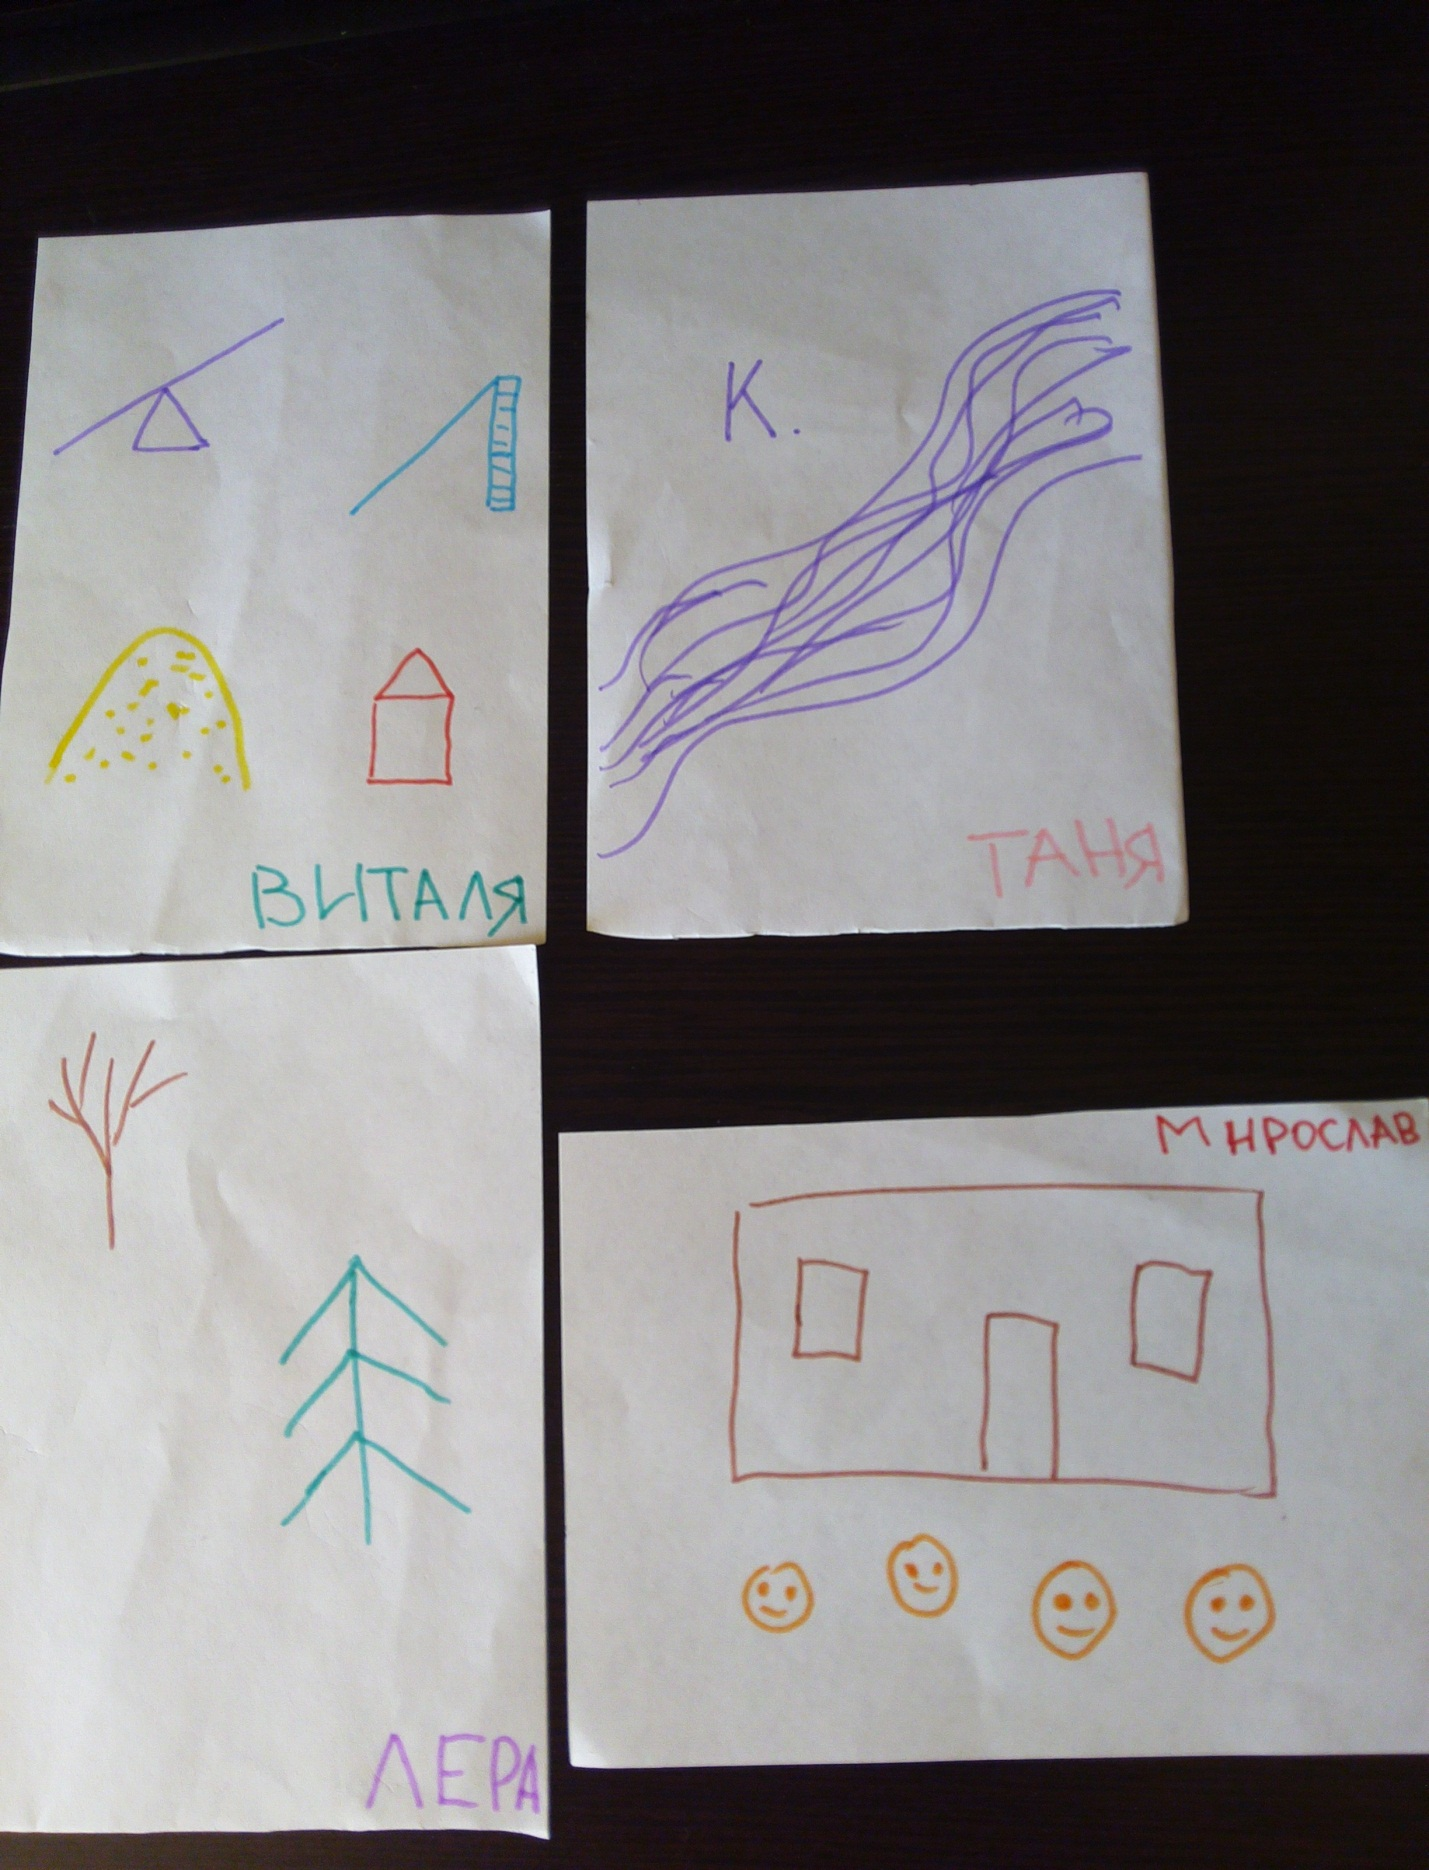 К.
ВИТАЛЯ
ТАНЯ
ЛЕРА
МИРОСЛАВ